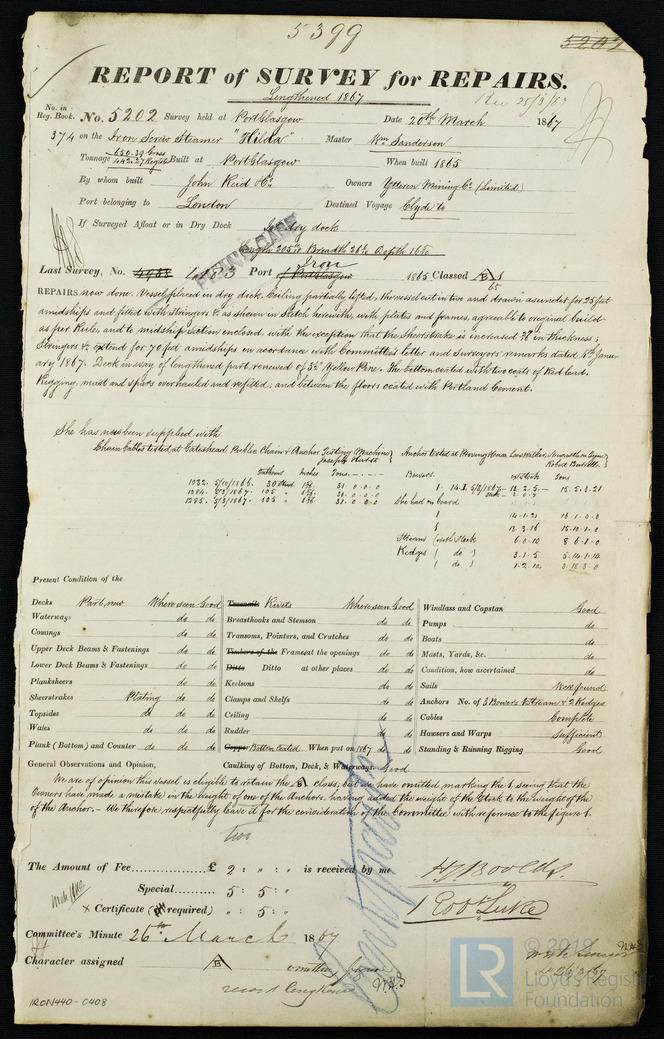 5399
5202
REPORT of SURVEY for REPAIRS.
Lengthened 1867
Rec 25/3/67
No. in Reg. Book.
No. 5202 Survey held at Port Glasgow Date 20th March 1867
374 on the Iron Screw Steamer "Hilda" Master Wm Sanderson
Tonnage 650.39 Gross 442.27 Register Built at Port Glasgow When built 1865
By whom built John Reid & Co Owners Ytteren Mining Co (Limited)
Port belonging to London Destined Voyage Clyde to
If Surveyed Afloat or in Dry Dock In dry dock
Length 205 Breadth 26 Depth 16
Iron
Last Survey, No. Port Port Glasgow 1865 Classed A 1
65
REPAIRS now done. Vessel placed in dry dock. Ceiling partially lifted, the vessel cut in two and drawn asunder for 25 feet
amidships and fitted with Stringers &c as shewn in Sketch herewith, with plates and frames, agreeable to original build
as per Rule, and to midship section enclosed with the exception that the Sheerstrake is increased in thickness;
Stringers &c extend for 70 feet amidships in accordance with Committee's letter and Surveyors remarks dated Janu-
ary 1867. Deck in way of lengthened part, renewed of 3½ Yellow Pine. The bottom coated with two coats of Red lead.
Rigging, mast and spars overhauled and refitted; and between the floors coated with Portland Cement.
She has now been supplied with
Chain Cables tested at Gateshead Public Chain & Anchor Testing Machine Joseph Hurst
Anchor tested at Proving House Low Walker, Newcastle on Tyne Robert
Fathoms Inches Tons
1032. 5/10/1866. 30 Stud 31.0.0.0
1284. 5/3/1867. 105 " 31.0.0.0
1285. 5/3/1867. 105 " 31.0.0.0
Bowers. ex Stock Tons
1. 5/3/1867 13.2.5 15.5.3.21
She had on board
1 14.1.21 16.1.0.0
1 13.3.16 15.10.1.0
Stream (with Stock 6.0.10 8.6.1.0
Kedges ( do ) 3.1.5 5.14.1.14
( do ) 1.2.12 3.18.3.0
Present Condition of the
Decks Part new Where seen Good
Waterways do do
Comings do do
Upper Deck Beams & Fastenings do do
Lower Deck Beams & Fastenings do do
Planksheers do do
Sheerstrakes Plating do do
Topsides do do do
Wales do do do
Plank (Bottom) and Counter do do do
Treenails Rivets Where seen Good
Breasthooks and Stemson do do
Transoms, Pointers, and Crutches do do
Timbers of the Frames at the openings do do
Ditto Ditto at other places do do
Keelsons do do
Clamps and Shelfs do do
Ceiling do do
Rudder do do
Copper Bottom Coated When put on 1867 do do
Caulking of Bottom, Deck, & Waterways Good
Windlass and Capstan Good
Pumps do
Boats do
Masts, Yards, &c. do
Condition, how ascertained do
Sails Well found
Anchors No. of 3 Bowers 1 Stream & 2 Kedges
Cables Complete
Hawsers and Warps Sufficient
Standing & Running Rigging Good
General Observations and Opinion,
We are of opinion this vessel is eligible to retain the A class, but we have omitted marking the 1, seeing that the
Owners have made a mistake in the weight of one of the Anchors, having added the weight of the Stock to the weight of the
of the Anchor. - We therefore respectfully leave it for the consideration of the Committee with reference to the figure 1.
two
The Amount of Fee £ 2 : " : " is received by me
Special 5 : 5 : "
x Certificate (if required) " : 5 : "
Robt Luke
Committee's Minute 26th March 1867
Character assigned A
record lengthened
N.A.S
26/3/67
IRON440-0408
LR
© 2019
Lloyd's Register
Foundation